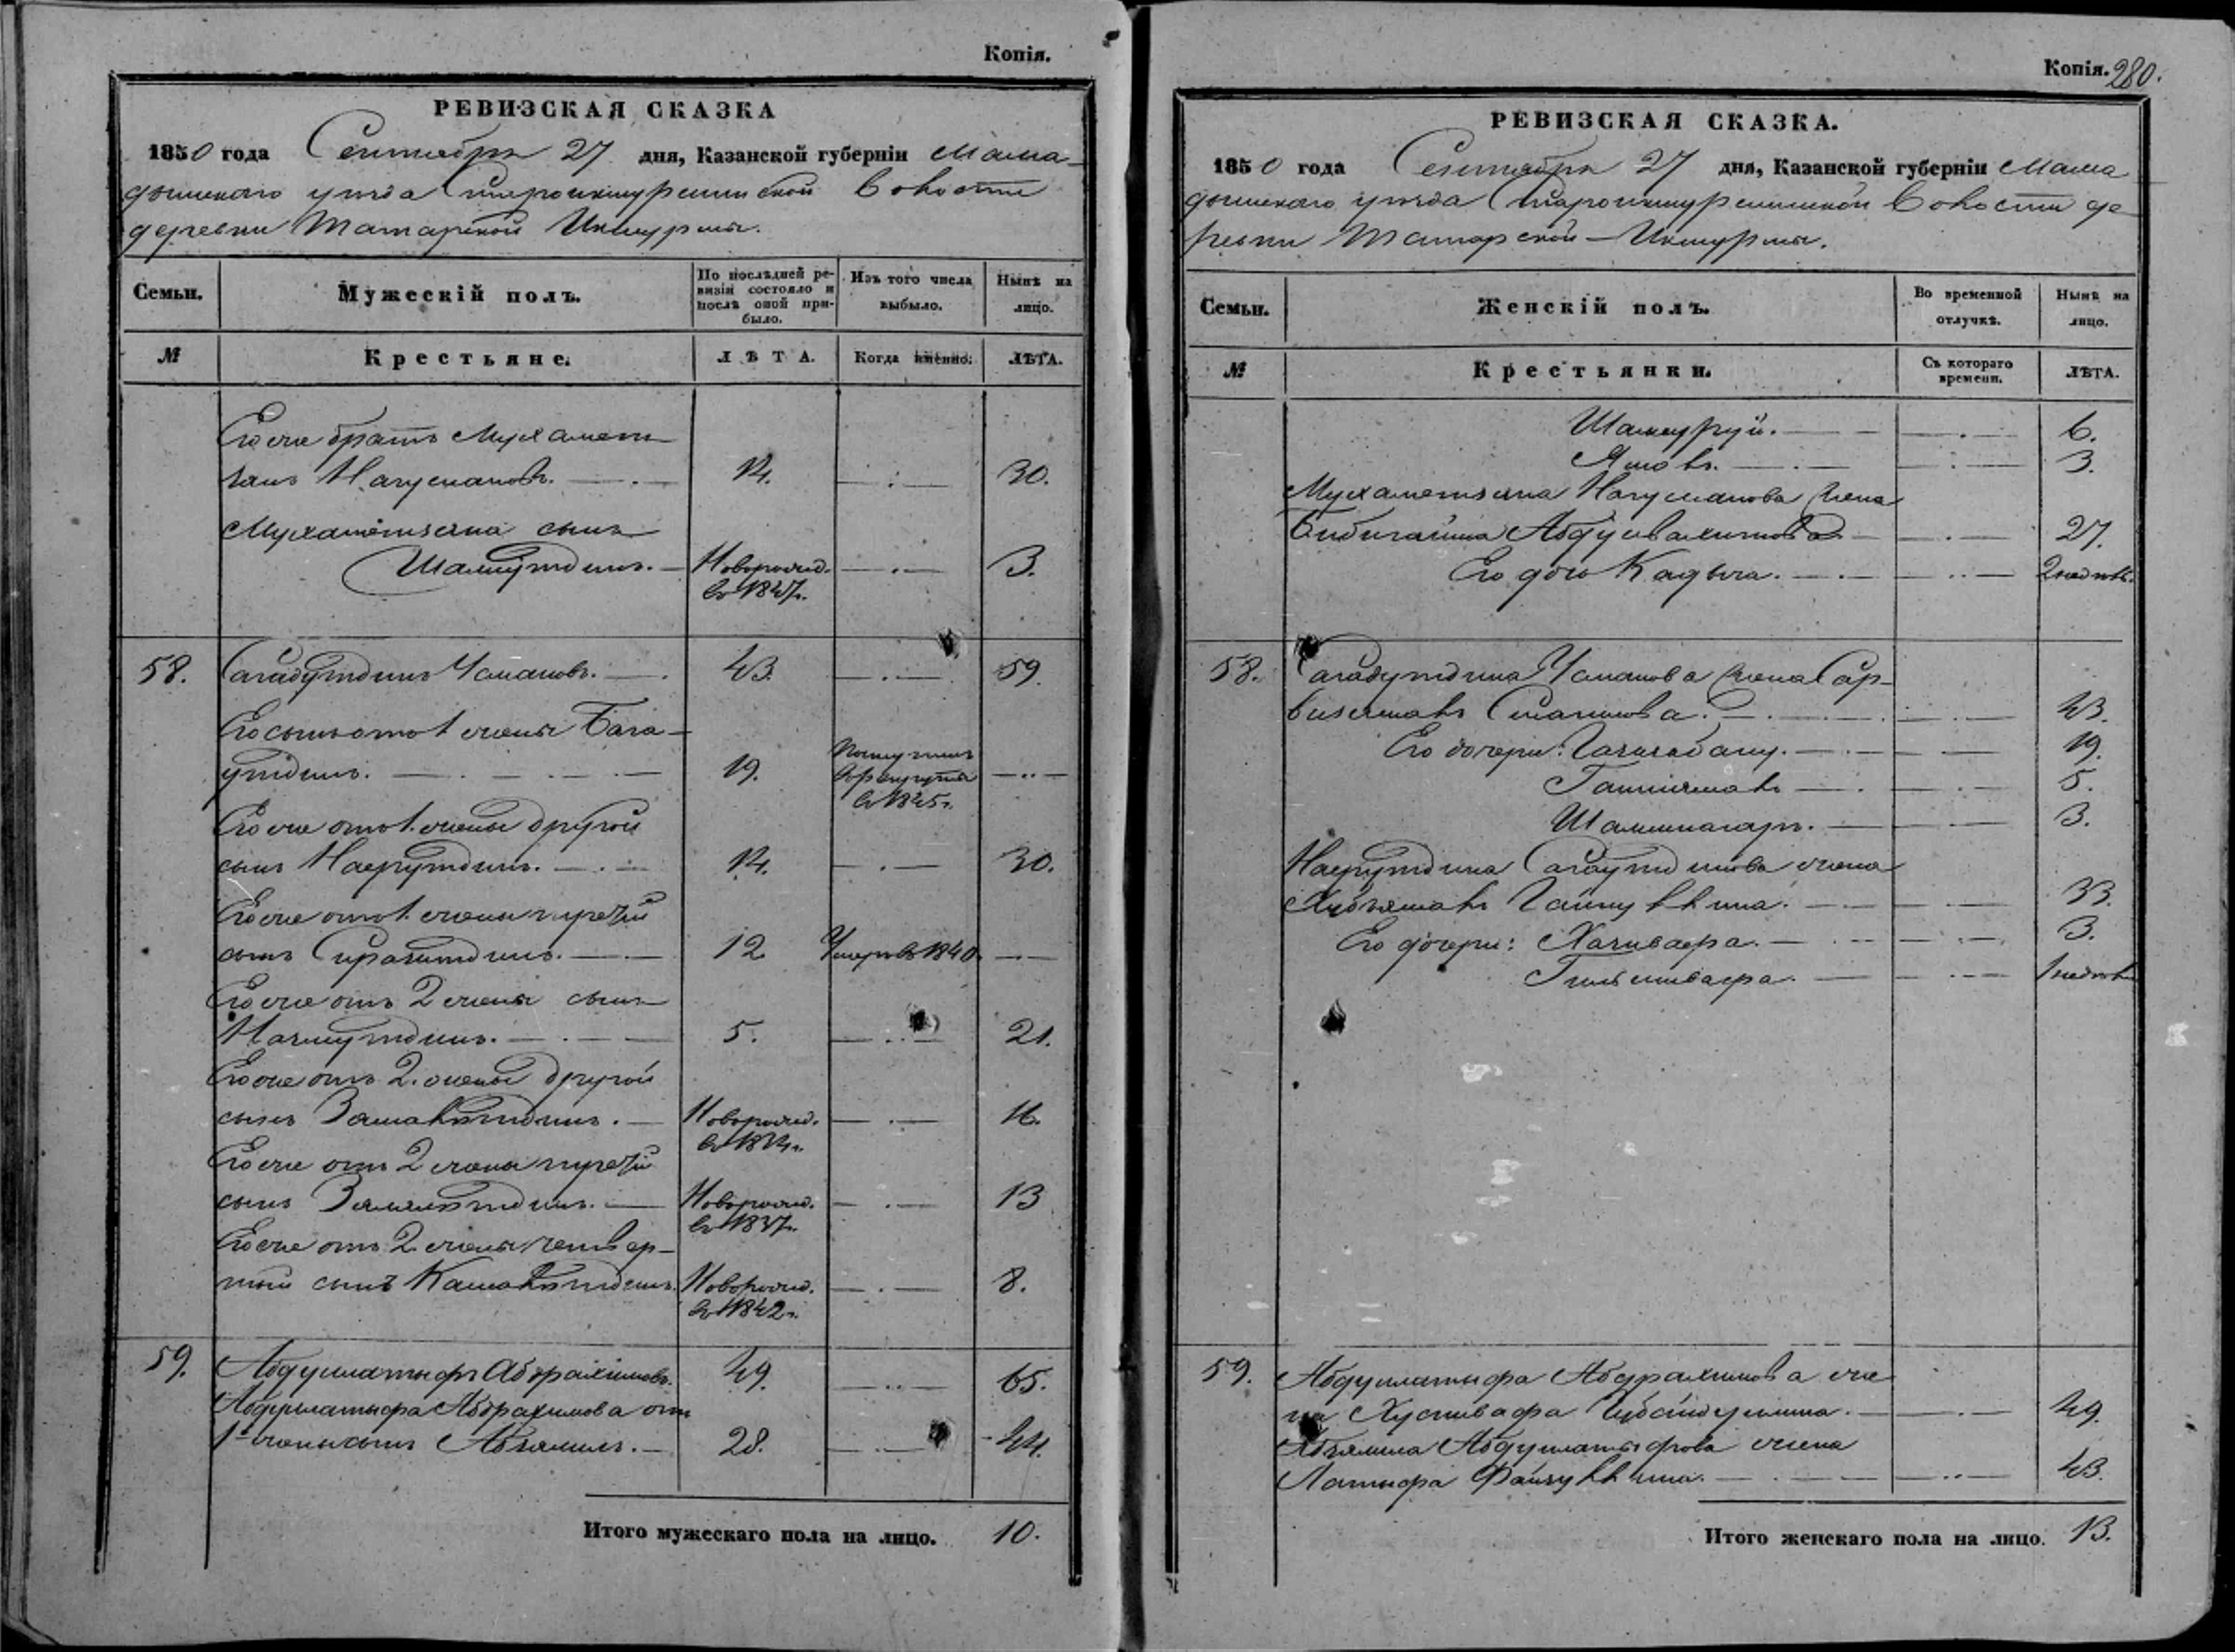 Копія.
РЕВИЗСКАЯ СКАЗКА
1850 года Сентября 27 дня, Казанской губерніи Мама-
дышскаго уѣзда Староикшурминской Волости
деревни Татарской Икшурмы.
Семьи.
Мужескій полъ.
По послѣдней ре-
визіи состояло и
послѣ оной при-
было.
Изъ того числа
выбыло.
Нынѣ на
лицо.
№
Крестьяне.
ЛѢТА.
Когда именно.
ЛѢТА.
Его же братъ Мухамет-
занъ Нагумановъ. 14. 30.
Мухаметзяна сынъ
Шамсутдинъ. Новорожд. 3.
въ 1847г.
58. Сагадутдинъ Усмановъ. 43. 59.
Его сынъ от 1 жены Бага-
утдинъ. 19. Поступилъ
въ рекруты
въ 1845г.
Его же от 1. жены другой
сынъ Насрутдинъ. 14. 30.
Его же от 1. жены третій
сынъ Сиразитдинъ. 12 Умеръ въ 1840
Его же отъ 2 жены сынъ
Назмутдинъ. 5. 21.
Его же отъ 2. жены другой
сынъ Замалитдинъ. Новорожд. 16.
въ 1834г.
Его же отъ 2 жены третій
сынъ Залялитдинъ. Новорожд. 13
въ 1837г.
Его же отъ 2 жены четвер-
тый сынъ Камалитдинъ. Новорожд. 8.
въ 1842г.
59. Абдуллатыфъ Абдрахимовъ. 49. 65.
Абдуллатыфа Абдрахимова отъ
1й жены сынъ Абзялилъ. 28. 44.
Итого мужескаго пола на лицо. 10.
Копія. 280.
РЕВИЗСКАЯ СКАЗКА.
1850 года Сентября 27 дня, Казанской губерніи Мама
дышскаго уѣзда Староикшурминской Волости де
ревни Татарской-Икшурмы.
Семьи.
Женскій полъ.
Во временной
отлучкѣ.
Нынѣ на
лицо.
№
Крестьянки.
Съ котораго
времени.
ЛѢТА.
6.
3.
Мухаметзяна Нагуманова жена
Бибигайша 27.
Его дочь Кадыча. 2 недѣль.
58. Сагадутдина Усманова жена Сар-
43.
Его дочери: 19.
5.
3.
Насрутдина Сагаутдинова жена
33.
Его дочери: 3.
1 недѣли
59. Абдуллатыфа Абдрахимова же
на 49.
Абзялила Абдуллатыфова жена
Латыфа Файзуллина. 43.
Итого женскаго пола на лицо. 13.